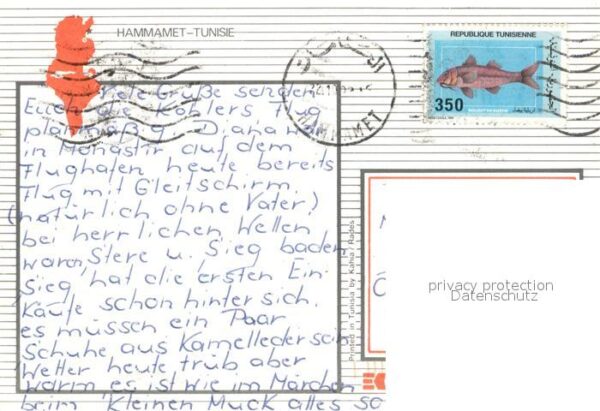 HAMMAMET-TUNISIE
REPUBLIQUE TUNISIENNE
350
HAMMAMET
Viele Grüße senden
Euch die Kohlers Flug
planmäßig. Diana
in Monastir auf dem
Flughafen heute bereits
Flug mit Gleitschirm.
(natürlich ohne Vater!)
bei herrlichen Wellen
waren Stere u. Sieg baden
Sieg hat die ersten Ein-
käufe schon hinter sich.
es müssen ein Paar
Schuhe aus Kamelleder sein
Wetter heute trüb aber
warm es ist wie im Märchen
beim "Kleinen Muck alles so
Printed in Tunisia by Kahia / Rades
privacy protection
Datenschutz